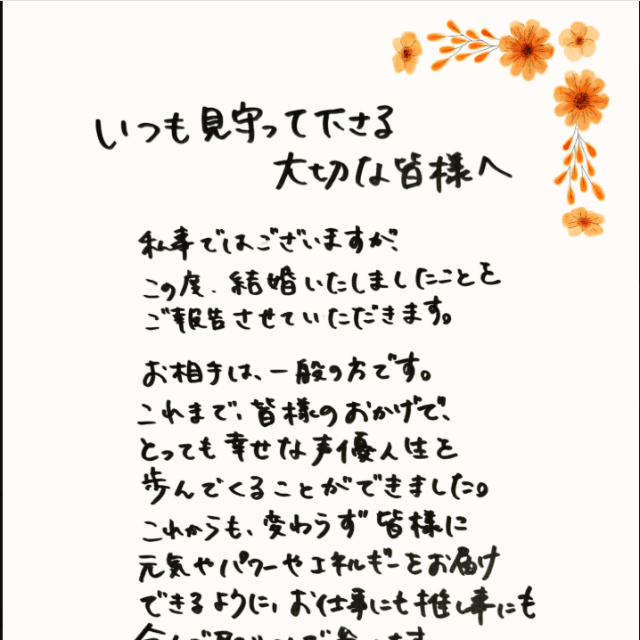 いつも見守って下さる
大切な皆様へ
私事ではございますが、
この度、結婚いたしましたことを
ご報告させていただきます。
お相手は、一般の方です。
これまで、皆様のおかげで、
とっても幸せな声優人生を
歩んでくることができました。
これからも、変わらず皆様に
元気やパワーやエネルギーをお届け
できるように、お仕事にも推し事にも